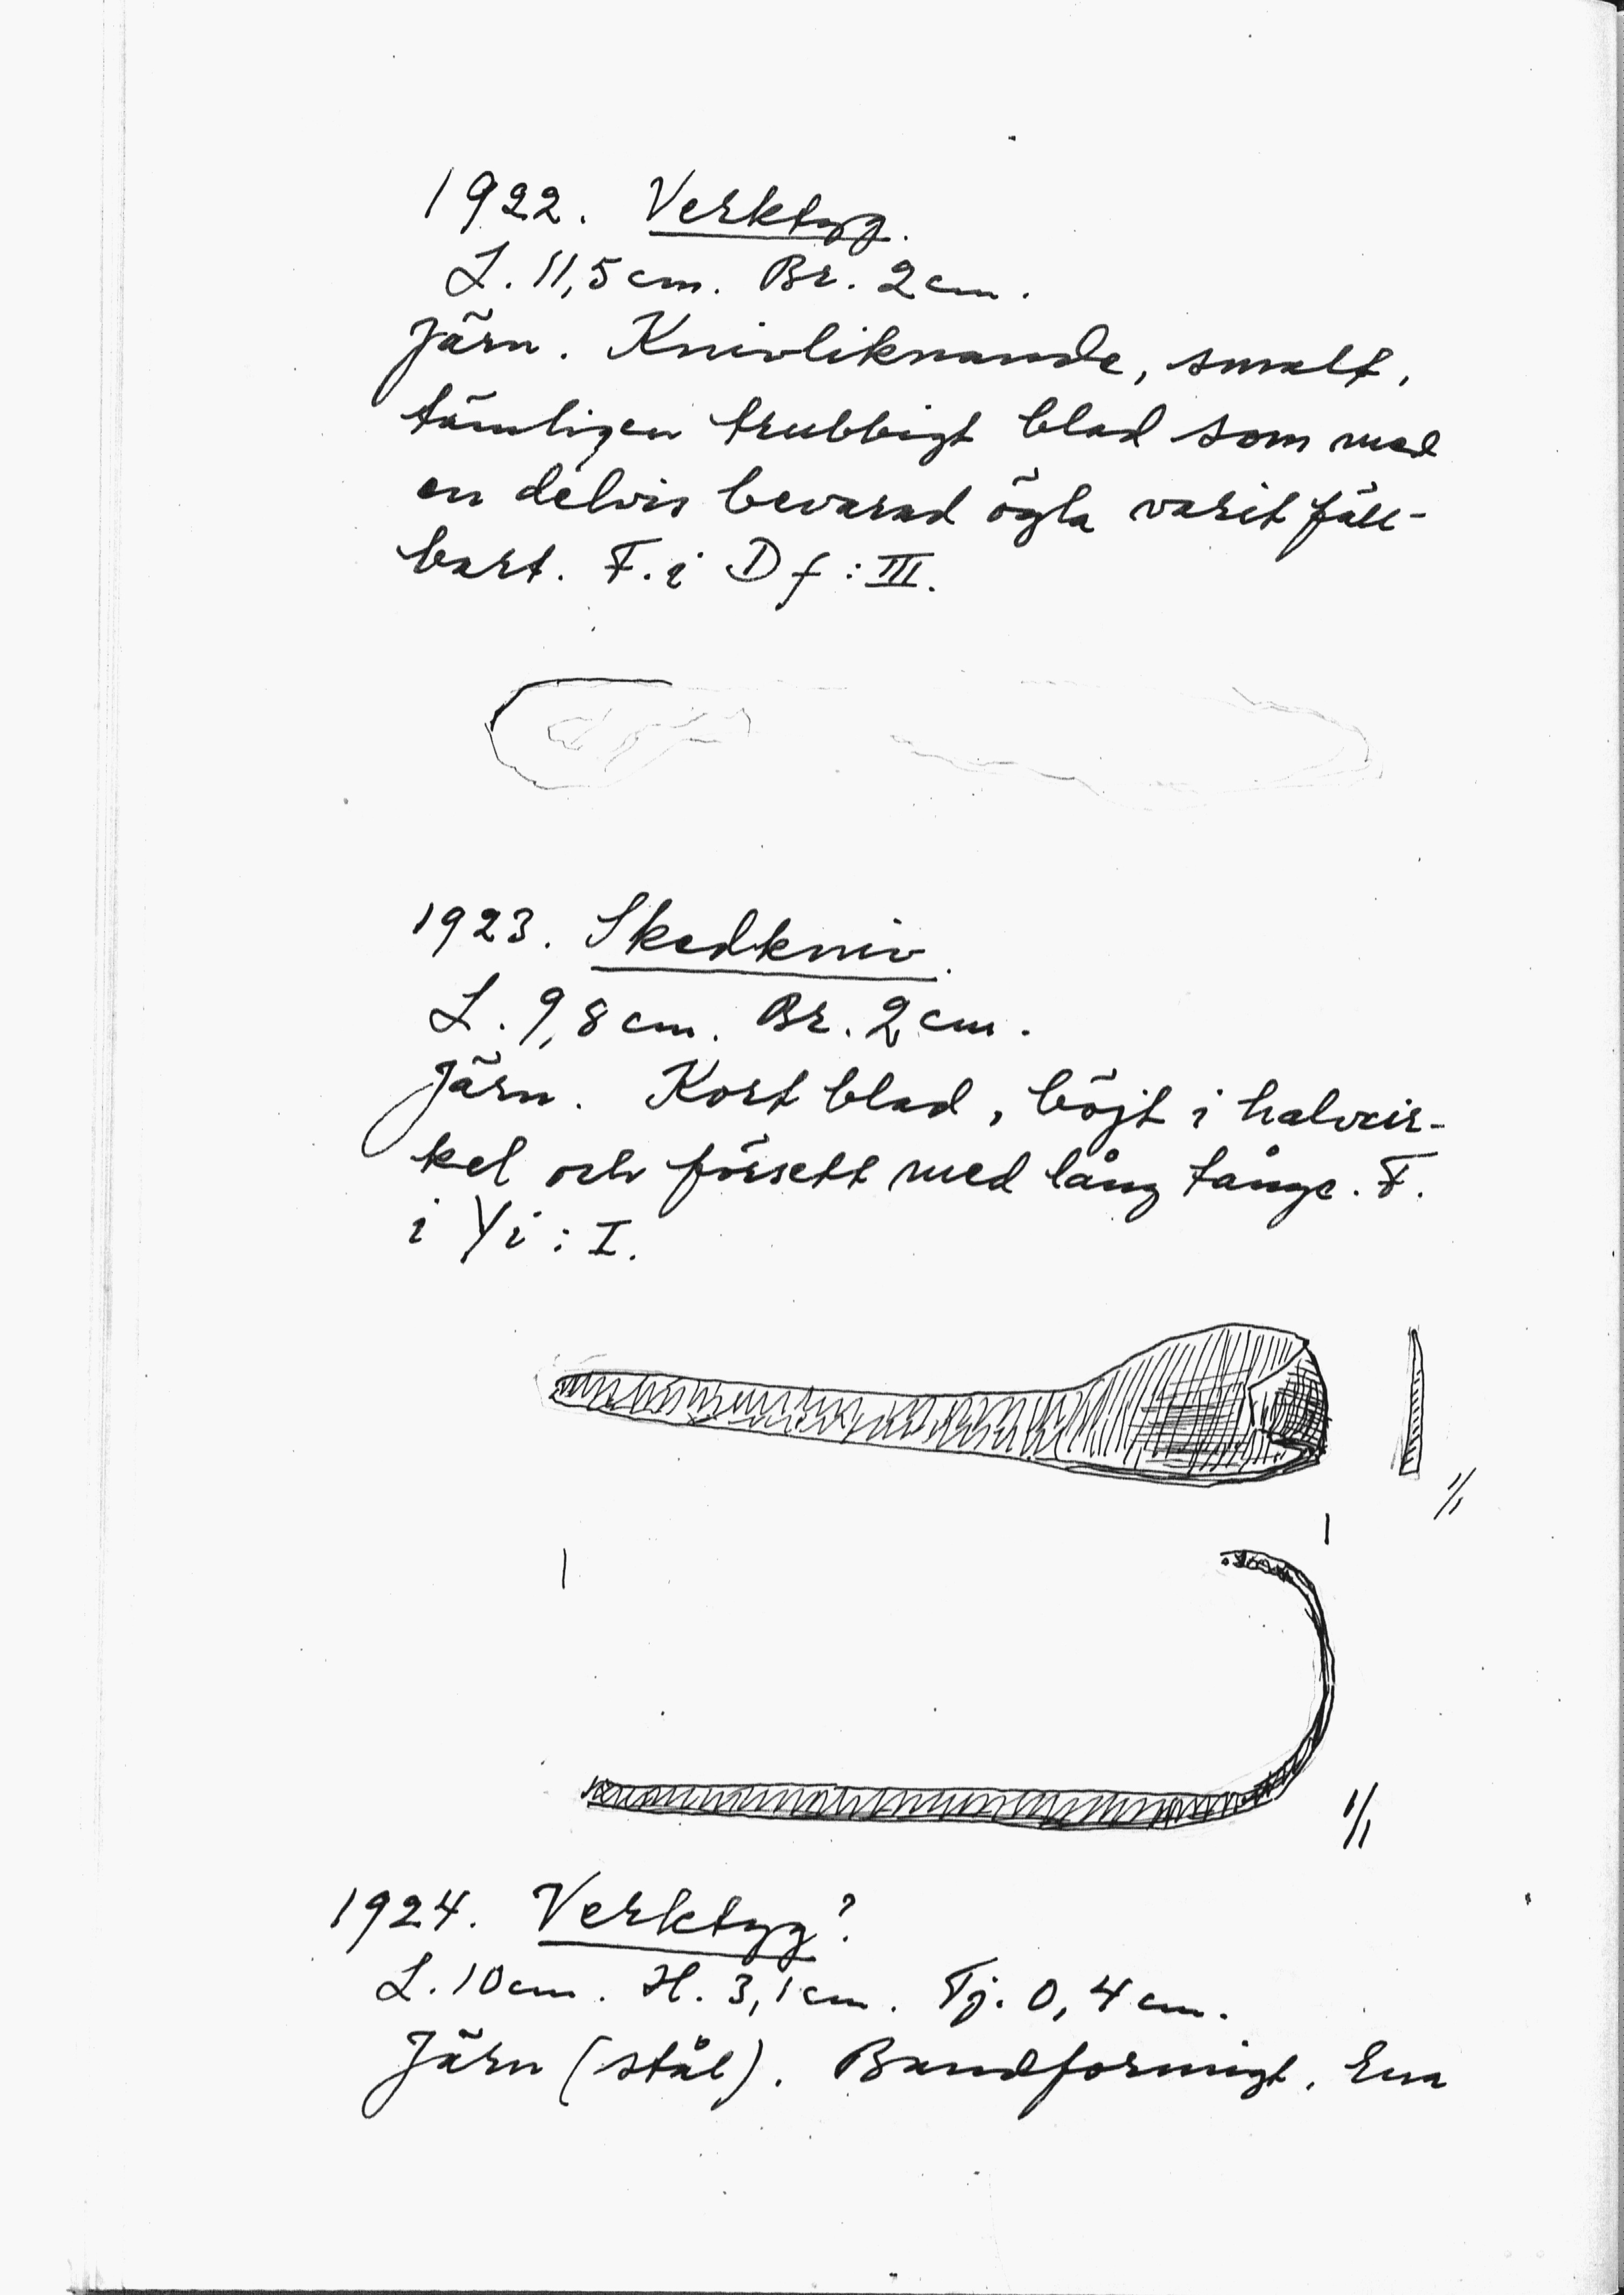 1922. Verktyg.
L. 11,5 cm. Br. 2 cm.
Järn. Knivliknande, smalt,
tämligen trubbigt blad som med
en delvis bevarad ögla varit fäll-
bart. F. i Df: III.
1923. Skedkniv.
L. 9,8 cm. Br. 2 cm.
Järn. Kort blad, böjt i halvcir-
kel och försett med lång tånge. F.
i Yi: I.
1/1
1/1
1924. Verktyg?
L. 10 cm. H. 3,1 cm. Tj. 0,4 cm.
Järn (stål). Bandformigt. Ena